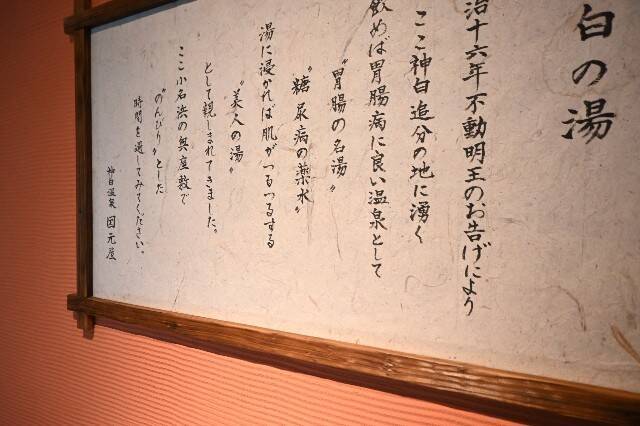 白の湯
治十六年不動明王のお告げにより
ここ神白追分の地に湧く
飲めば胃腸病に良い温泉として
"胃腸の名湯"
"糖尿病の薬水"
湯に浸かれば肌がつるつるする
"美人の湯"
として親しまれてきました。
ここ小名浜の奥座敷で
"のんびり"とした
時間を過してみてください。
神白温泉 国元屋